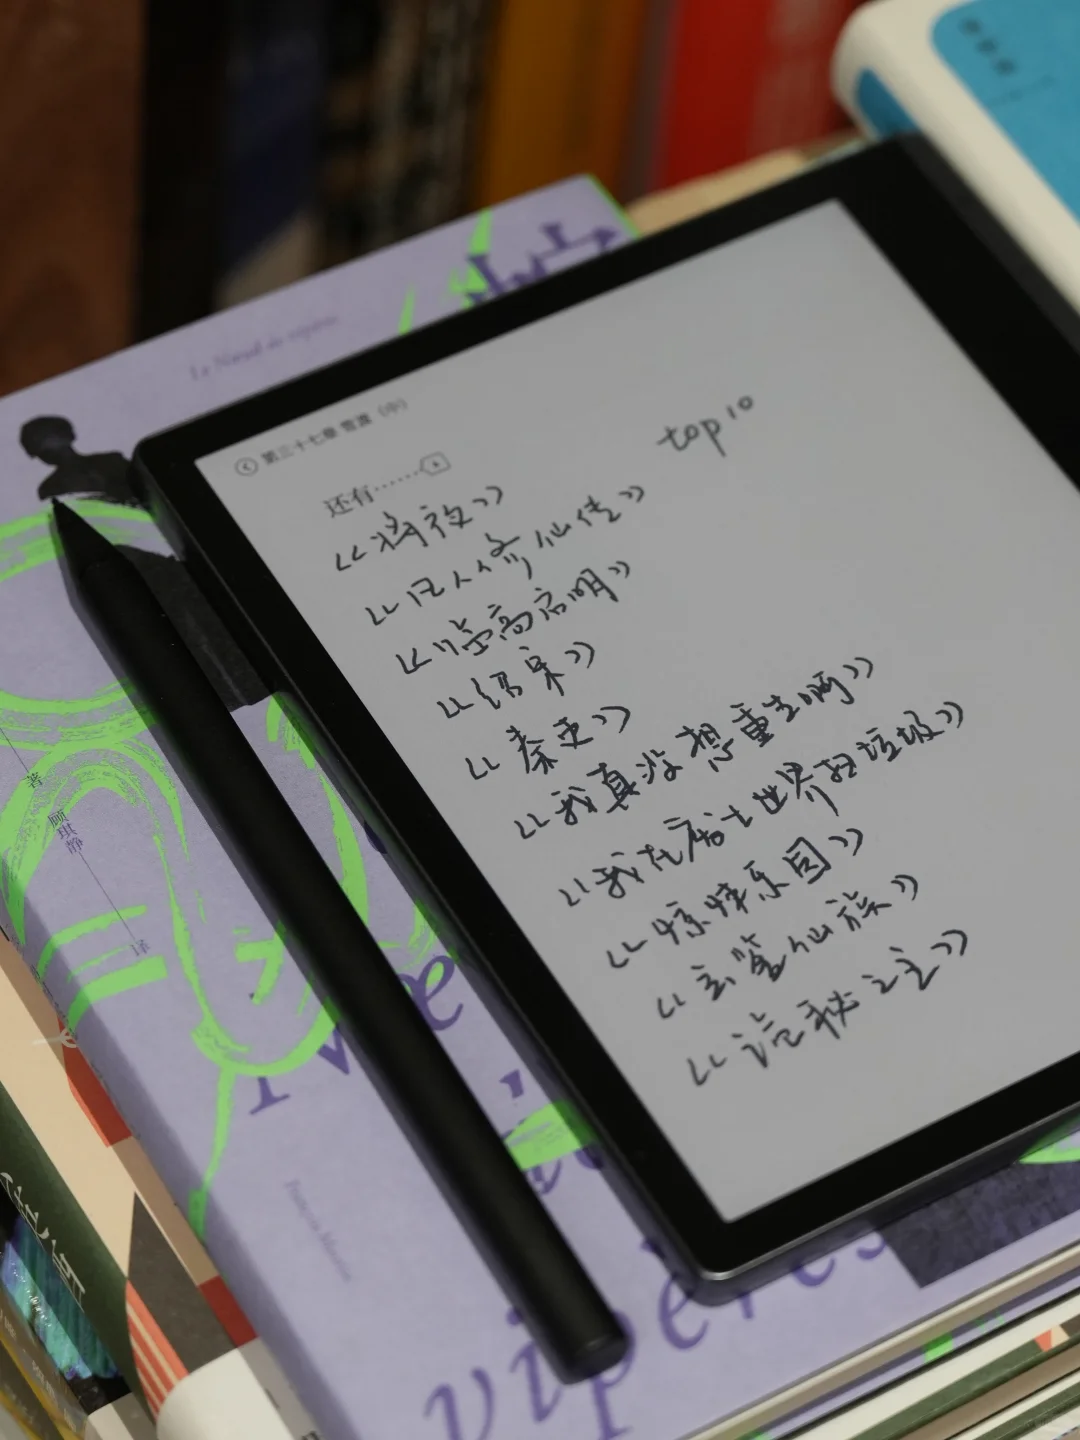 Le Nœud de vipères
第三十七章 雪渡（中）
还有……
top 10
《将夜》
《凡人修仙传》
《临高启明》
《绍宋》
《秦吏》
《我真没想重生啊》
《我在废土世界扫垃圾》
《惊悚乐园》
《玄鉴仙族》
《诡秘之主》
著
顾琪静
译
vipères